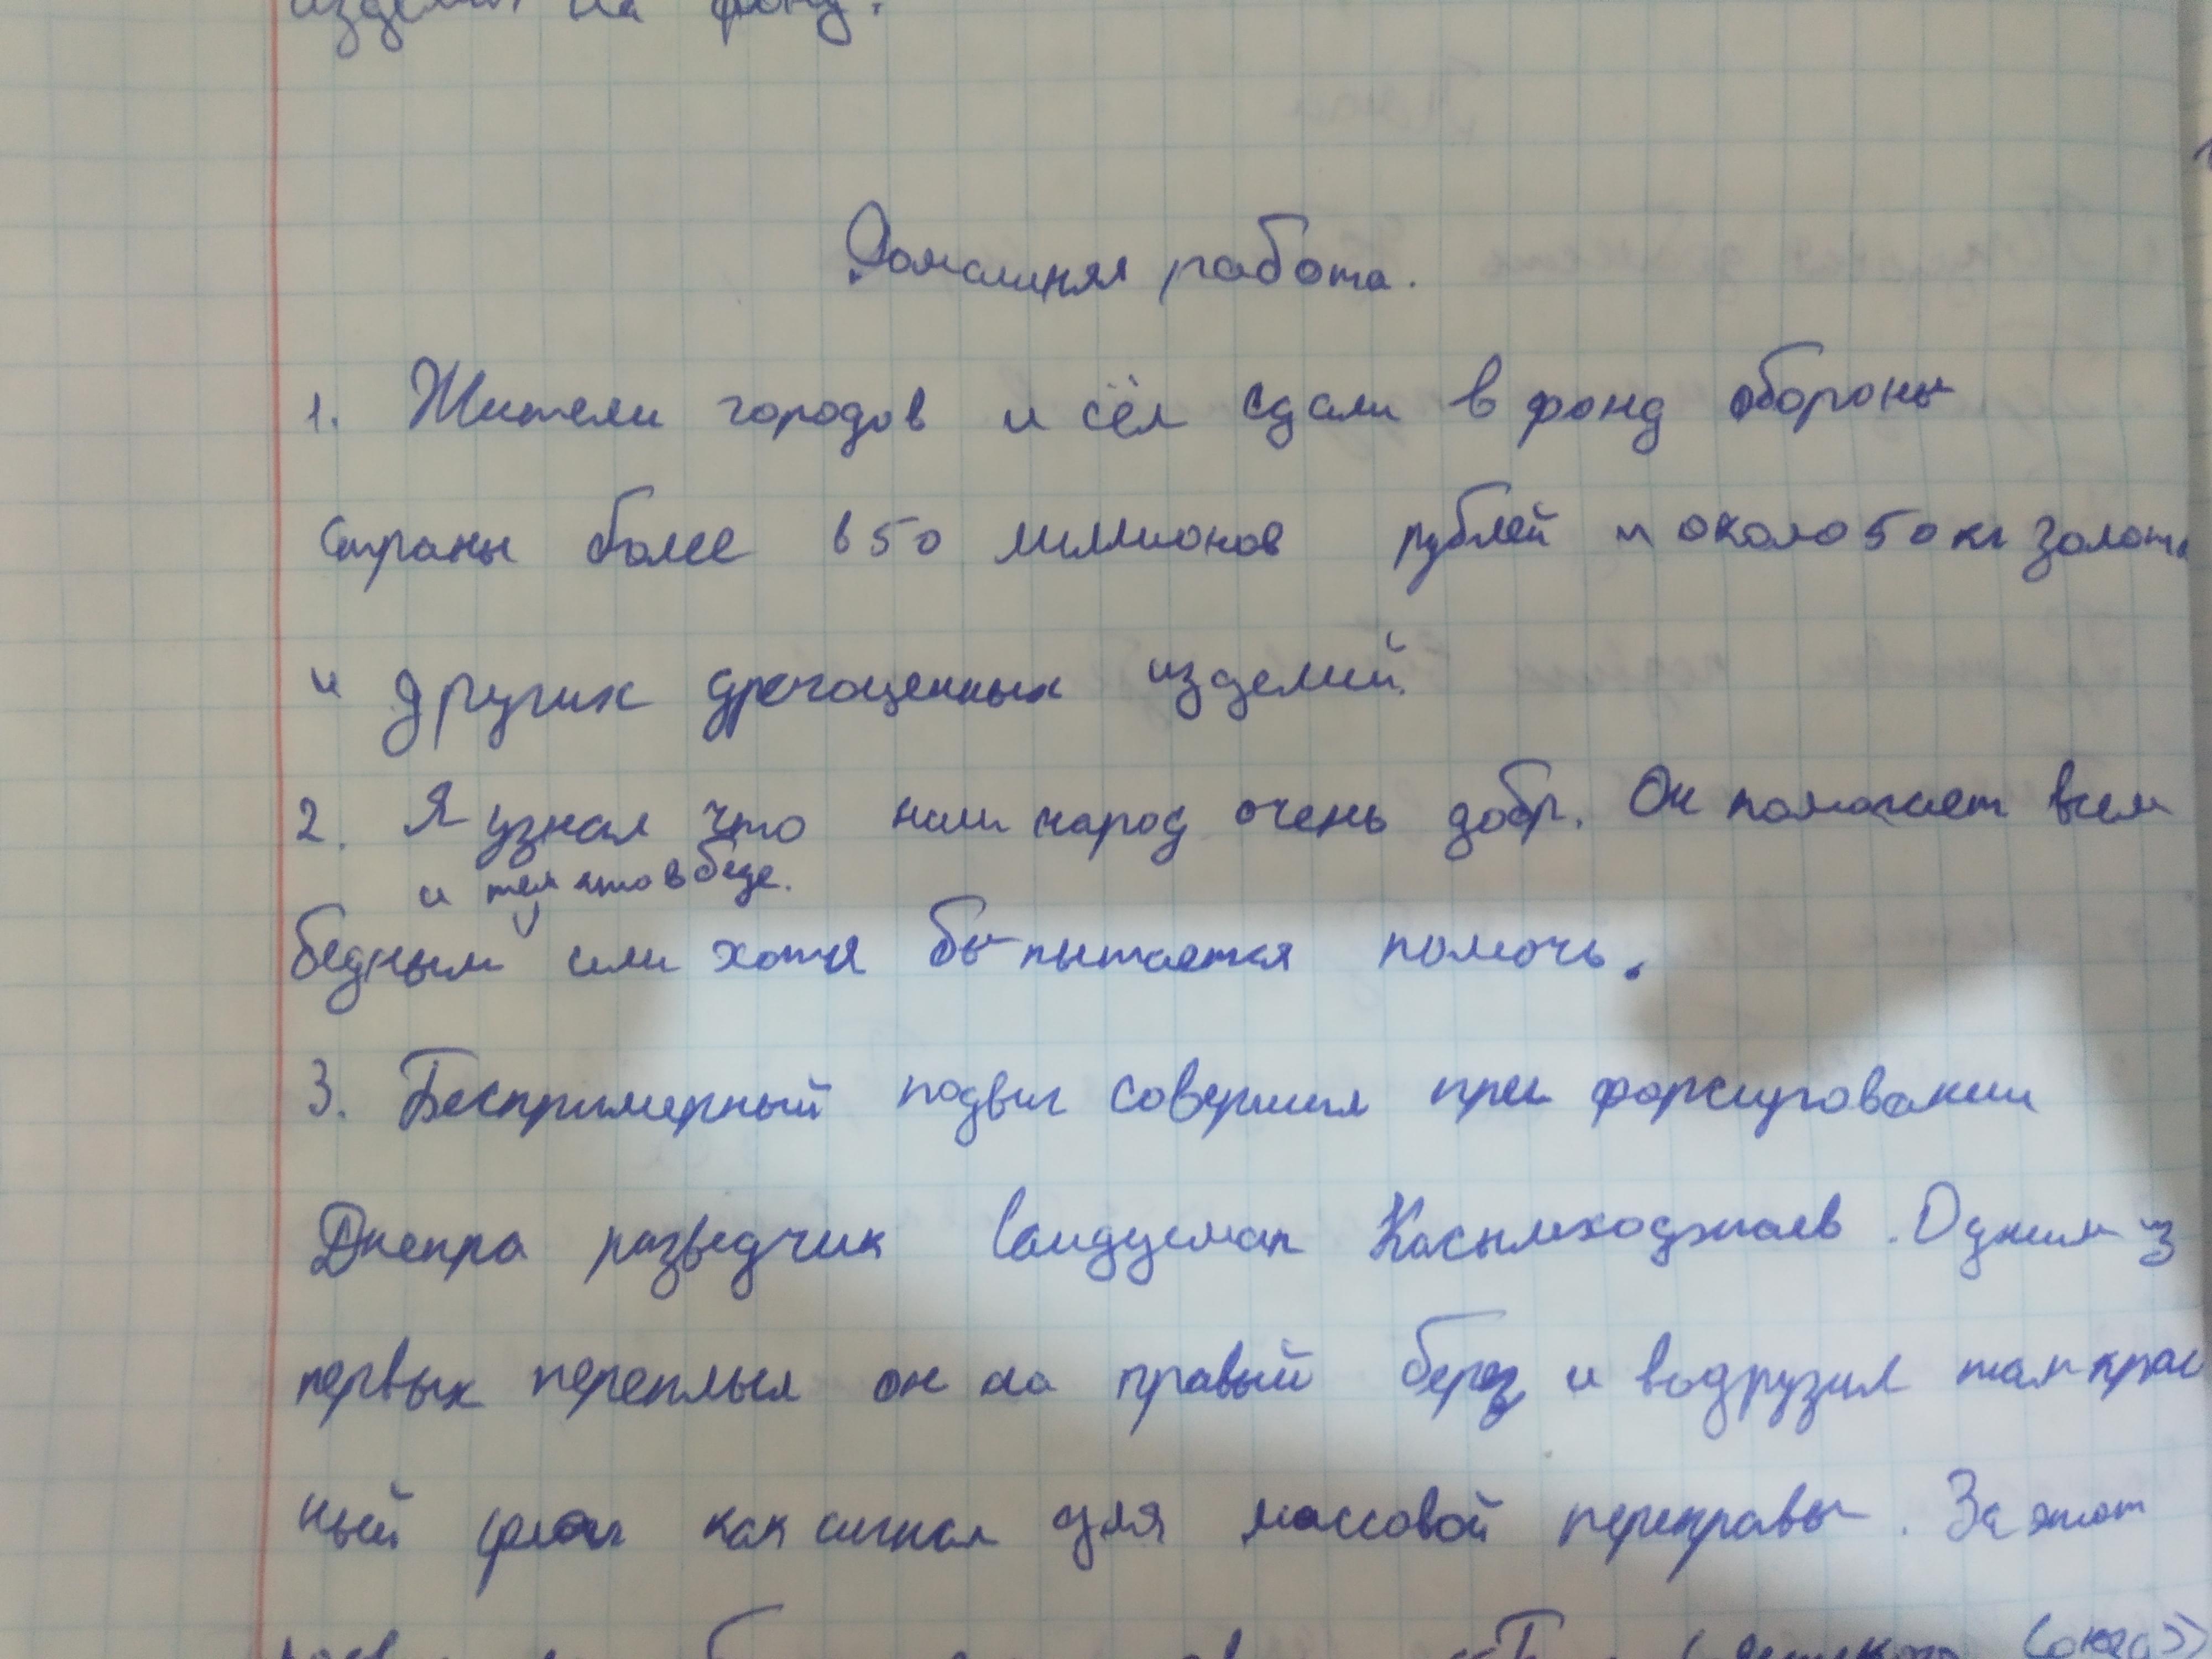 изделия на фонд.
Домашняя работа.
1. Жители городов и сёл сдали в фонд обороны
страны более 650 миллионов рублей и около 50 кг золота
и других дрогоценных изделий.
2. Я узнал что наш народ очень добр. Он помогает всем
и тем кто в беде.
бедным или хотя бы пытается помочь.
3. Беспримерный подвиг совершил при форсировании
Днепра разведчик Саидусман Касымходжаев. Одним из
первых переплыл он на правый берег и водрузил там крас
ный флаг как сигнал для массовой переправы. За этот
Советского Союза»